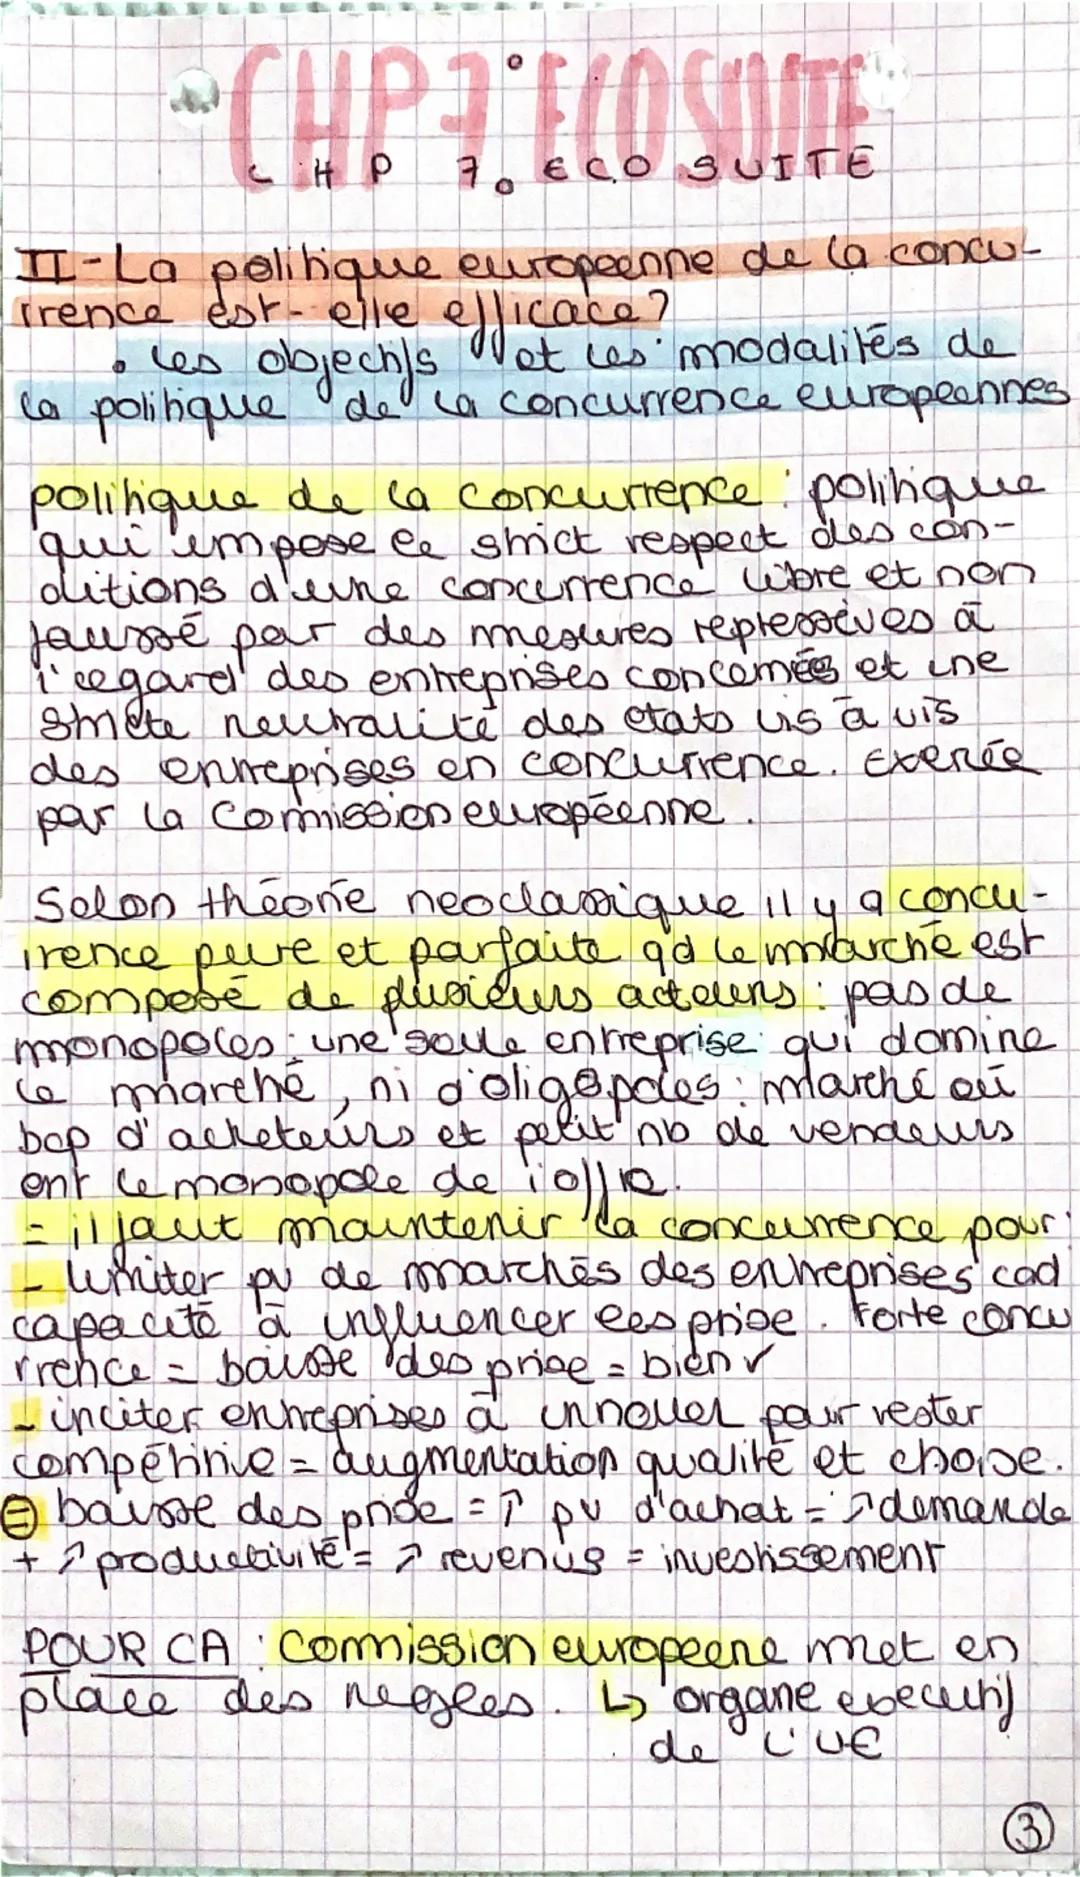 CHP 7° ECO SUITE
CHP 7. ECO SUITE
II - La politique europeenne de la concu-
rrence est-elle efficace?
• les objectifs et les modalités de
la politique de la concurrence europeennes
politique de la concurrence : politique
qui impose le strict respect des con-
ditions d'une concurrence libre et non
faussé par des mesures repressives à
l'egard des entreprises concernées et une
stricte neutralité des etats vis à vis
des entreprises en concurrence. Exercée
par la Commission européenne.
Selon théorie neoclassique il y a concu-
rrence pure et parfaite qd le marché est
composé de plusieurs acteurs : pas de
monopoles : une seule entreprise qui domine
le marché, ni d'oligopoles : marché où
bcp d'acheteurs et petit nb de vendeurs
ont le monopole de l'offre.
= il faut maintenir la concurrence pour :
- limiter pv de marchés des entreprises cad
capacité à influencer les prise. Forte concu
rrence = baisse des prise = bien v
- inciter entreprises à innover pour rester
compétitive = augmentation qualité et choise.
= baisse des prise = ↑ pv d'achat = ↗ demande
+ ↗ productivité = ↗ revenus = investissement
POUR CA : Commission europeene met en
place des regles. ↳ organe executif
de l'UE
3